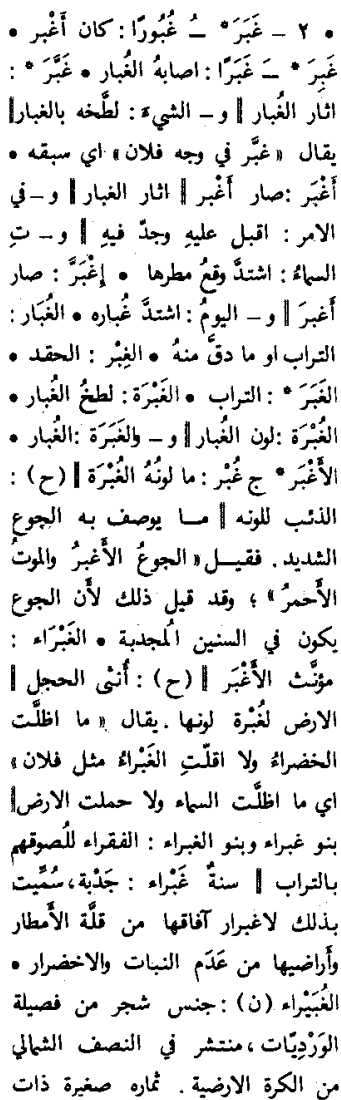 • ٢ – غَبَرَ* ـُ غُبُورًا: كان أَغْبر •
غَبِرَ* ـَ غَبَرًا: اصابهُ الغُبار • غَبَّرَ*:
اثار الغُبار ‖ و – الشيءَ: لطَّخه بالغبار‖
يقال «غبَّر في وجه فلان» اي سبقه •
أَغْبَرَ: صار أَغْبر ‖ اثار الغبار ‖ و – في
الامر: اقبل عليهِ وجدّ فيهِ ‖ و – تِ
السماءُ: اشتدَّ وقعُ مطرها • إغْبَرَّ: صار
أغبرَ ‖ و – اليومُ: اشتدَّ غُباره • الغُبَار:
التراب او ما دقَّ منهُ • الغِبْر: الحقد •
الغَبَرَ*: التراب • الغَبْرَة: لطخُ الغُبار •
الغُبْرَة: لون الغُبار‖ و – والغَبَرَة: الغُبار •
الأَغْبَر* ج غُبْر: ما لونُهُ الغُبْرَة ‖ (ح):
الذئب للونه ‖ مـا يوصف به الجوع
الشديد. فقيـل «الجوعُ الأَغبرُ والموتُ
الأَحمرُ»؛ وقد قيل ذلك لأَن الجوع
يكون في السنين المُجدبة • الغَبْرَاء:
مؤنَّث الأَغْبَر ‖ (ح): أُنثى الحجل ‖
الارض لغُبْرة لونها. يقال «ما اظلَّت
الخضراءُ ولا اقلّتِ الغَبْراءُ مثل فلان»
اي ما اظلَّت السماء ولا حملت الارض‖
بنو غبراء وبنو الغبراء: الفقراء للُصوقهم
بالتراب ‖ سنةٌ غَبْراء: جَدْبة، سُمِّيت
بذلك لاغبرار آفاقها من قلَّة الأَمطار
وأَراضيها من عَدَم النبات والاخضرار •
الغُبَيْراء (ن): جنس شجر من فصيلة
الوَرْديّات، منتشر في النصف الشمالي
من الكرة الارضية. ثماره صغيرة ذات